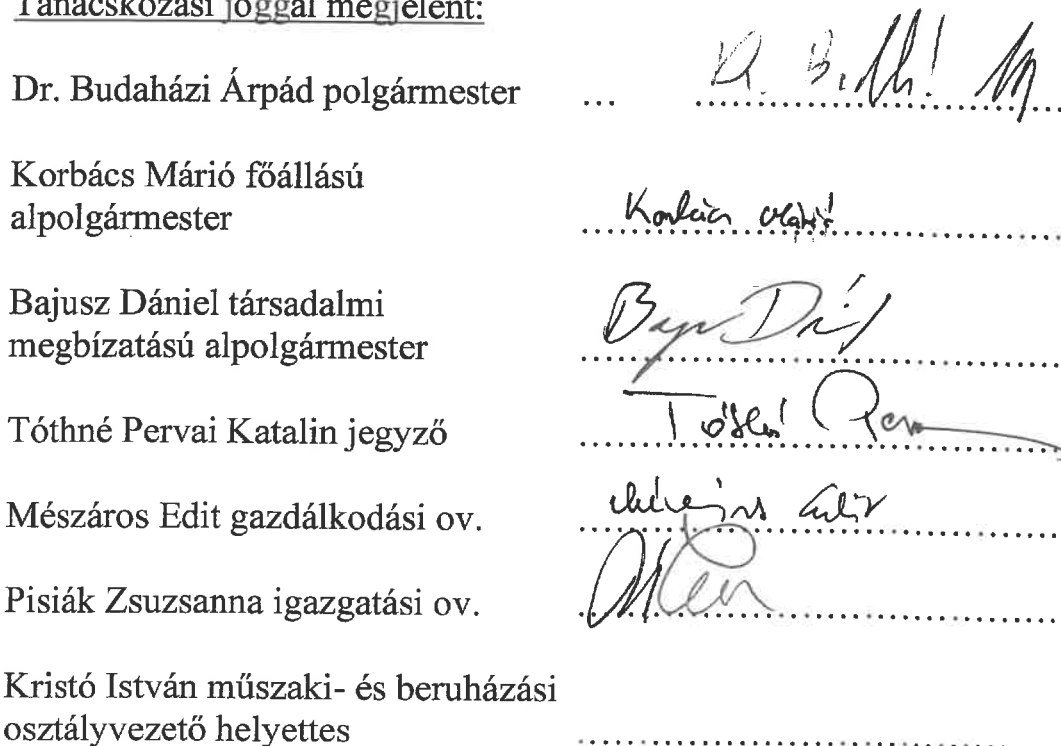 Tanácskozási joggal megjelent:
Dr. Budaházi Árpád polgármester ... ..............................
Korbács Márió főállású
alpolgármester Korbács Márió
Bajusz Dániel társadalmi
megbízatású alpolgármester
Tóthné Pervai Katalin jegyző Tóthné
Mészáros Edit gazdálkodási ov. Mészáros Edit
Pisiák Zsuzsanna igazgatási ov.
Kristó István műszaki- és beruházási
osztályvezető helyettes ..............................